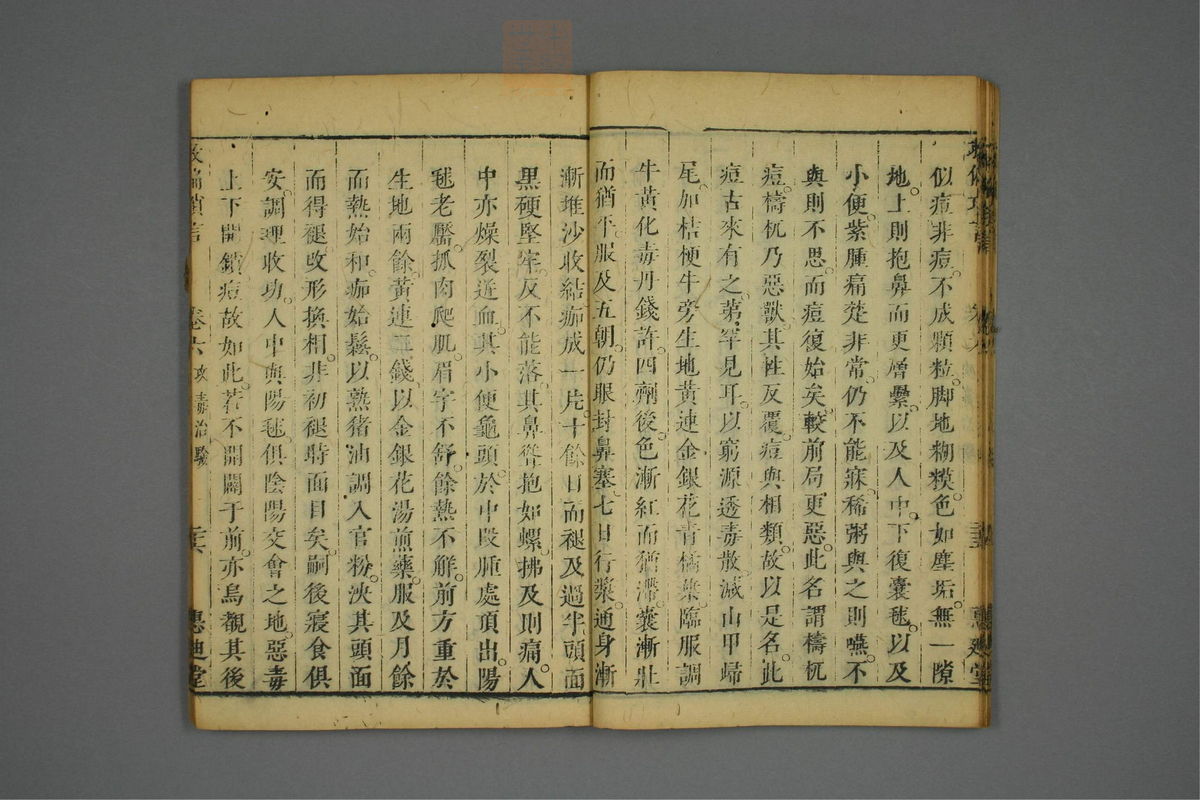 似痘非痘。不成顆粒。脚地糊模。色如塵垢。無一隙
地。上則抱鼻而更層纍。以及人中。下復囊毬。以及
小便。紫腫痛楚非常。仍不能寐。稀粥與之則嚥。不
與則不思。而痘復始矣。較前局更惡。此名謂檮杌
痘。檮杌乃惡獸。其性反覆。痘與相類。故以是名。此
痘古來有之。第罕見耳。以窮源透毒散。減山甲歸
尾。加桔梗牛旁生地黃連金銀花青橘葉。臨服調
牛黃化毒丹錢許。四劑後。色漸紅而猶滯。囊漸壯
而猶平。服及五朝。仍眼封鼻塞。七日行漿。通身漸
漸堆沙收結。痂成一片。十餘日而褪及過半。頭面
黑硬堅牢。反不能落。其鼻聳抱如螺。拂及則痛。人
中亦燥裂迸血。其小便龜頭。於中段腫處頂出。陽
毬老靨。抓肉爬肌。眉宇不舒。餘熱不解。前方重於
生地兩餘。黃連三錢。以金銀花湯煎藥。服及月餘
而熱始和。痂始鬆。以熟猪油調入官粉。泱其頭面
而得褪。改形換相。非初褪時面目矣。嗣後寢食俱
安。調理收功。人中與陽毬。俱陰陽交會之地。惡毒
上下開鎖。痘故如此。若不開闢于前。亦烏觀其後
卷六 攻毒治驗 惠迪堂